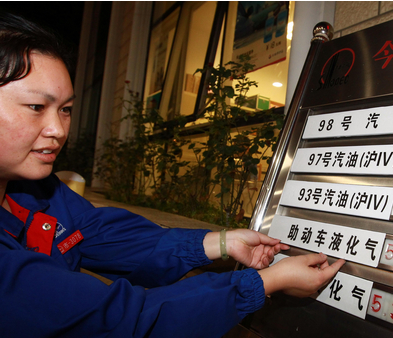 今
98 号 汽
97号汽油(沪IV
93号汽油(沪IV)
助动车液化气
5
化气
5